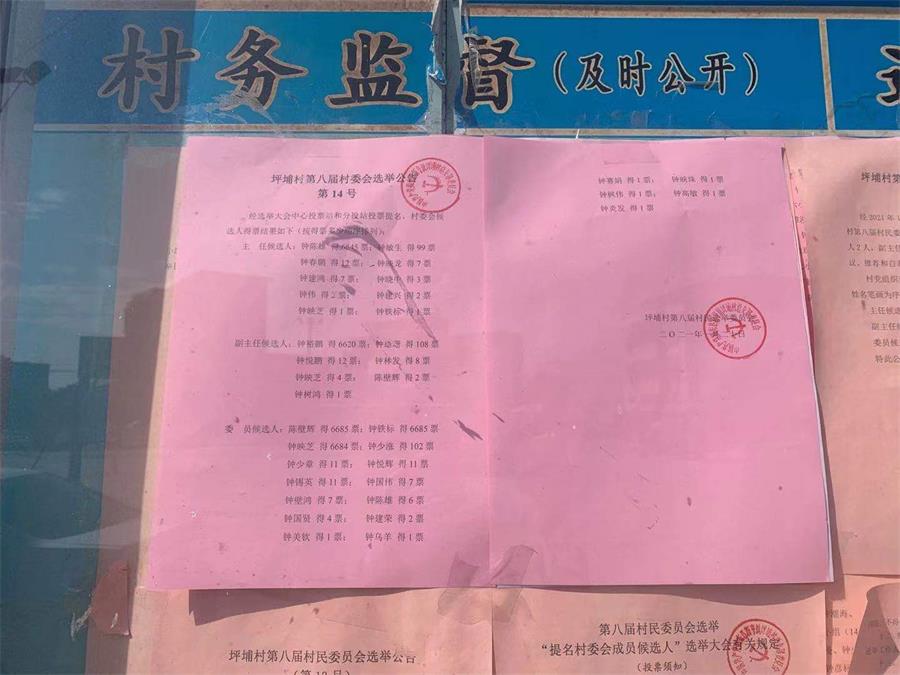 村务监督(及时公开)
坪埔村第八届村委会选举公告
第 14 号
经选举大会中心投票站和分投站投票提名，村委会候
选人得票结果如下（按得票多少顺序排列）：
主 任候选人：钟陈雄 得 6645 票；钟敏生 得 99 票
钟春鹏 得 12 票； 钟映龙 得 7 票
钟建鸿 得 7 票； 钟晓中 得 3 票
钟伟 得 2 票； 钟建兴 得 2 票
钟映芝 得 1 票； 钟铁标 得 1 票
副主任候选人：钟裕鹏 得 6620 票； 得 108 票
钟悦鹏 得 12 票； 钟林发 得 8 票
钟映芝 得 4 票； 陈壁辉 得 2 票
钟树鸿 得 1 票
委 员候选人：陈壁辉 得 6685 票；钟铁标 得 6685 票
钟映芝 得 6684 票；钟少涨 得 102 票
钟少章 得 11 票； 钟悦辉 得 11 票
钟锡英 得 11 票； 钟国伟 得 7 票
钟壁鸿 得 7 票； 钟陈雄 得 6 票
钟国贤 得 4 票； 钟建荣 得 2 票
钟美钦 得 1 票； 钟乌羊 得 1 票
钟赛娟 得 1 票； 钟映珠 得 1 票
钟枫伟 得 1 票； 钟高敏 得 1 票
钟炎发 得 1 票
坪埔村第八届村民选举委员会
二〇二一年
坪埔村第
经 2021 年 1
村第八届村民委
人 2 人，副主任
议、推荐和自荐
村党组织
姓名笔画为序
主任候
副主任候
委员候
特此公
坪埔村第八届村民委员会选举公告
第八届村民委员会选举
“提名村委会成员候选人”选举大会有关规定
（投票须知）